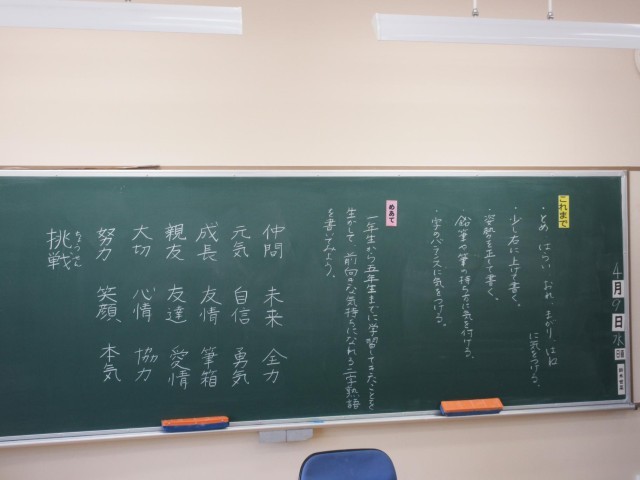 4月9日水曜
これまで
・とめ はらい おれ、まがり、はね
に気をつける。
・少し右に上げて書く。
・姿勢を正して書く。
・鉛筆の筆の持ち方に気を付ける。
・字のバランスに気をつける。
めあて
一年生から五年生までに学習してきたことを
生かして、前向きな気持ちになれる二字熟語
を書いてみよう。
仲間 未来 全力
元気 自信 勇気
成長 友情 筆箱
親友 友達 愛情
大切 心情 協力
努力 笑顔 本気
挑戦
ちょうせん